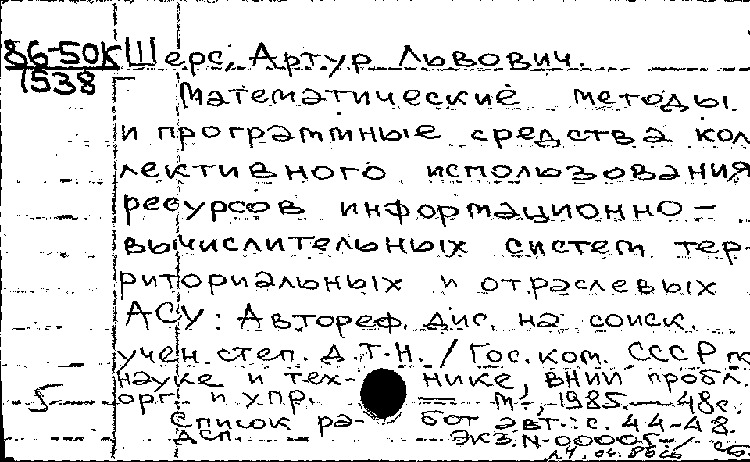 86-50К Шерс, Артур Львович.
1538
Математические методы
и программные средства кол
лективного использования
ресурсов информационно-
вычислительных систем тер-
риториальных и отраслевых
АСУ: Автореф. дис. на соиск.
учен. степ. д.т.н. / Гос. ком. СССР п
науке и тех- нике, ВНИИ пробл.
5 орг. и упр. — М., 1985. — 48с.
Список ра- бот авт.: с. 44-48.
ДСП. Экз. N-00005.